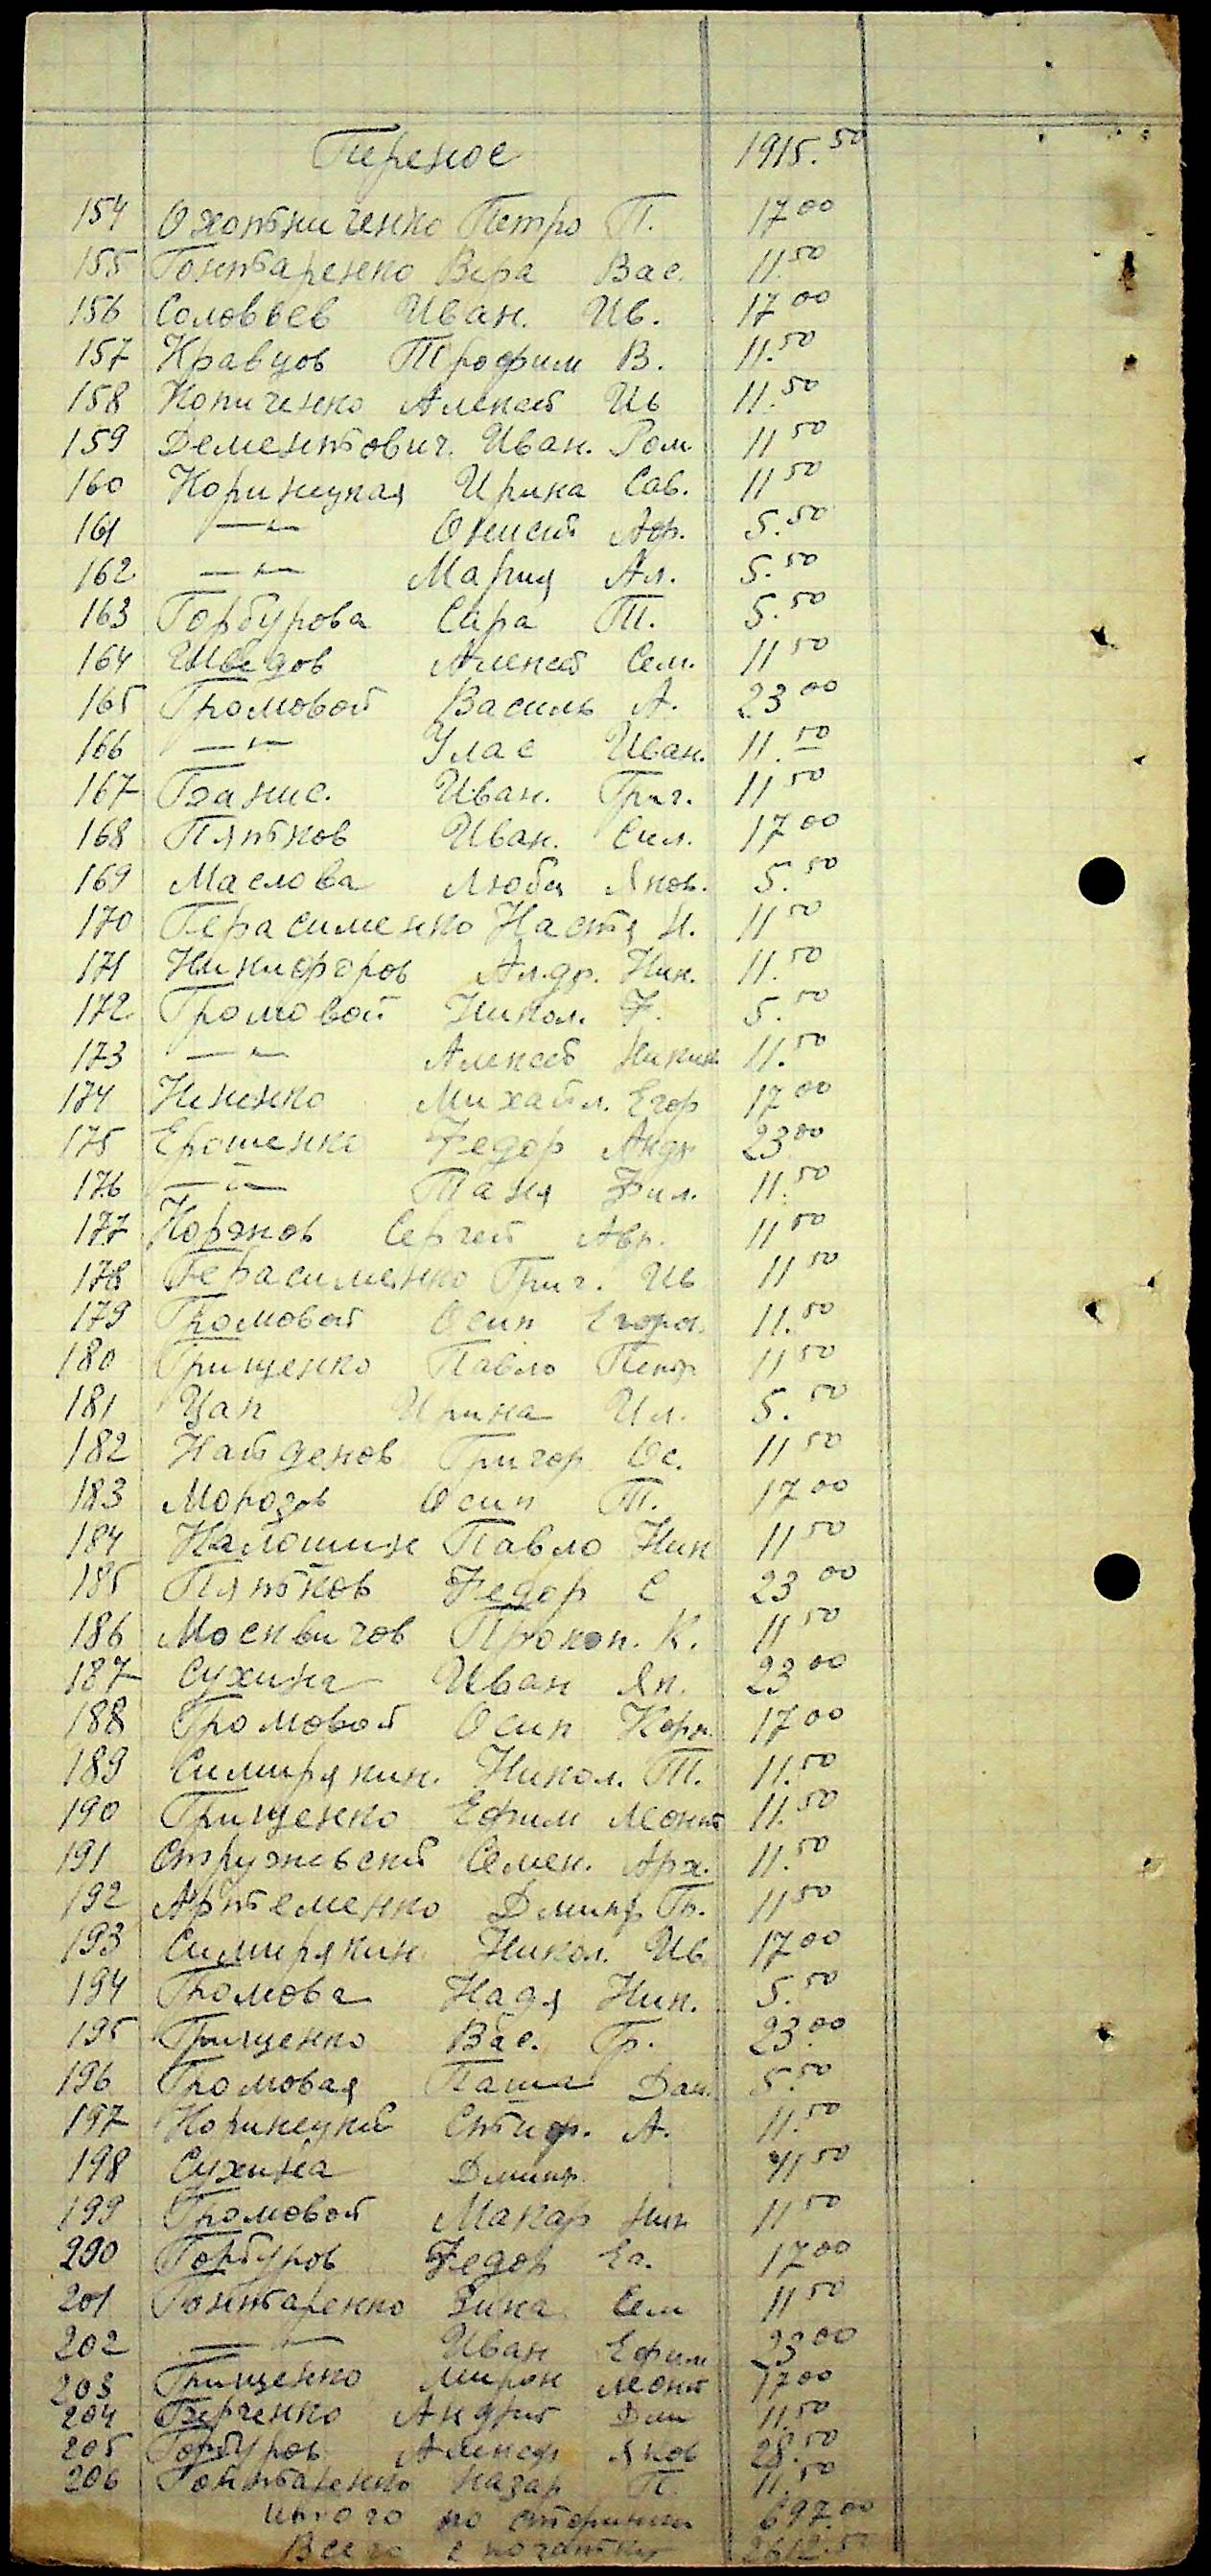 Перенос 1915.50
154 Охотниченко Петро П. 17 00
155 Гонтаренко Вера Вас. 11.50
156 Соловьев Иван. Ив. 17 00
157 Кравцов Трофим В. 11.50
158 Копиченко Алексей Ив 11.50
159 Дементович. Иван. Ром. 11 50
160 Коринецкая Ирина Сав. 11 50
161 —"— Оксент Аф. 5.50
162 —"— Мария Ал. 5.50
163 Горбурова Сара Т. 5.50
164 Шведов Алексей Сем. 11 50
165 Громовой Василь А. 23 00
166 —"— Улас Иван. 11.50
167 Иван. Григ. 11 50
168 Пятков Иван. Сил. 17 00
169 Маслова Люба Яков. 5.50
170 Герасименко Настя И. 11 50
171 Никифоров Ал.др. Ник. 11.50
172 Громовой Никол. Ф. 5.50
173 —"— Алексей 11.50
174 Михайл. Егор 17 00
175 Ерошенко Федор Андр 23 00
176 —"— Таня Фил. 11.50
177 Сергей Авр. 11 50
178 Герасименко Григ. Ив 11 50
179 Громовой Осип Егоров. 11.50
180 Грищенко Павло Петр 11 50
181 Цап Ирина Ил. 5.50
182 Найденов Григор Ос. 11 50
183 Морозов Осип Т. 17 00
184 Калошин Павло Ник 11 50
185 Пятков Федор С 23 00
186 Москвичов Прокоп. К. 11 50
187 Сухина Иван Як. 23 00
188 Громовой Осип Корн. 17 00
189 Симирякин. Никол. Т. 11.50
190 Грищенко Ефим Леонт 11.50
191 Стружевский Семен. Арх. 11.50
192 Артеменко Дмитр Гр. 11 50
193 Симирякин Никол. Ив. 17 00
194 Громова Надя Ник. 5.50
195 Грищенко Вас. Гр. 23.00
196 Громовая Паша Дан. 5.50
197 Коринецкий Стиф. А. 11.50
198 Сухина Дмитр. 11 50
199 Громовой Макар Ник 11 50
200 Горбуров Федор Ег. 17 00
201 Гонтаренко Зина Сем 11 50
202 —"— Иван Ефим 23 00
203 Грищенко Мирон Леонт 17 00
204 Андрий Дми 11.50
205 Горбуров Алексер Яков 28.50
206 Гонтаренко Назар П. 11.50
Итого по сторинки 697.00
Всего с початку 2612.50